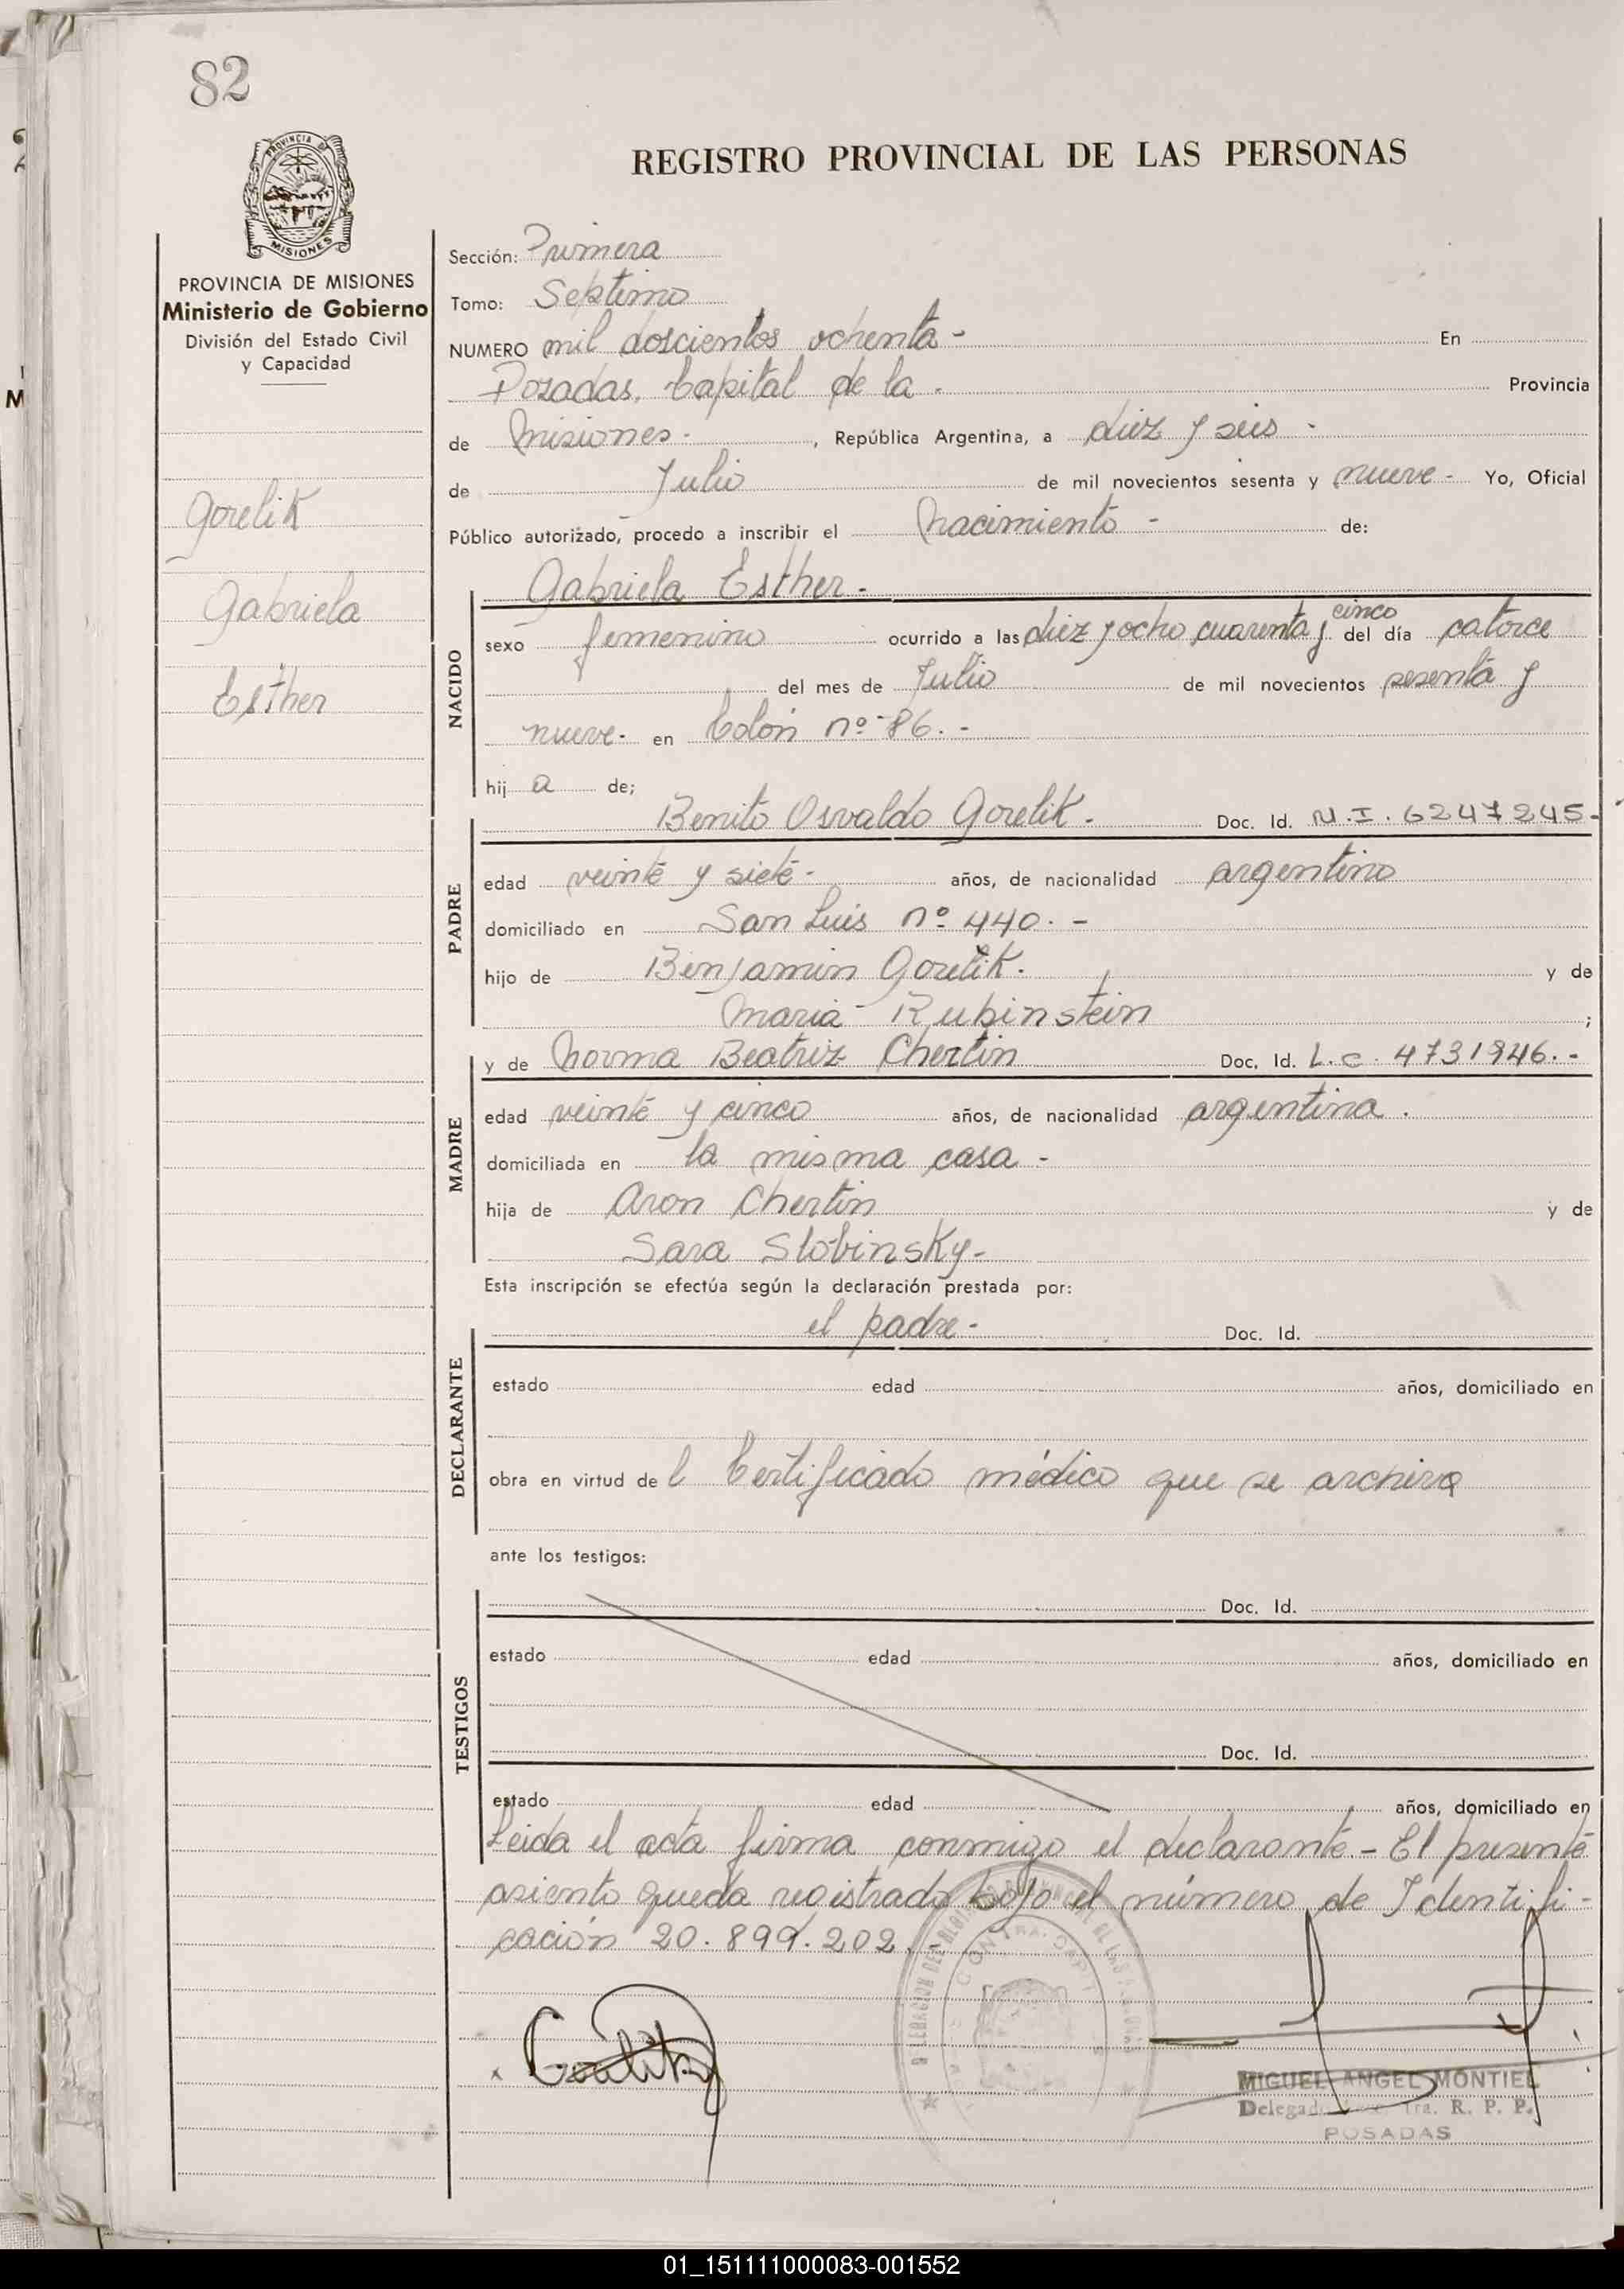 82
PROVINCIA DE
MISIONES
REGISTRO PROVINCIAL DE LAS PERSONAS
PROVINCIA DE MISIONES
Ministerio de Gobierno
División del Estado Civil
y Capacidad
Gorelik
Gabriela
Esther
Sección: Primera
Tomo: Septimo
NUMERO mil doscientos ochenta - En
Posadas, Capital de la - Provincia
de Misiones - , República Argentina, a diez y seis -
de Julio de mil novecientos sesenta y nueve - Yo, Oficial
Público autorizado, procedo a inscribir el Nacimiento - de:
Gabriela Esther -
NACIDO
sexo femenino ocurrido a las diez y ocho cuarenta y cinco del día catorce
del mes de Julio de mil novecientos sesenta y
nueve - en Colón nº 86. -
hij a de;
Benito Osvaldo Gorelik - Doc. Id. M.I. 6247245-
PADRE
edad veinte y siete - años, de nacionalidad argentino
domiciliado en San Luis nº 440. -
hijo de Benjamin Gorelik. y de
Maria Rubinstein ;
y de Norma Beatriz Chertin Doc. Id. L.C. 4731946. -
MADRE
edad veinte y cinco años, de nacionalidad argentina.
domiciliada en la misma casa -
hija de Aron Chertin y de
Sara Slobinsky -
Esta inscripción se efectúa según la declaración prestada por:
el padre - Doc. Id.
DECLARANTE
estado edad años, domiciliado en
obra en virtud de l Certificado médico que se archiva
ante los testigos:
TESTIGOS
Doc. Id.
estado edad años, domiciliado en
Doc. Id.
estado edad años, domiciliado en
Leida el acta firma conmigo el declarante - El presente
asiento queda registrado bajo el número de Identifi-
cación 20.899.202.
Gorelik
MIGUEL ANGEL MONTIEL
R. P. P.
POSADAS
01_151111000083-001552